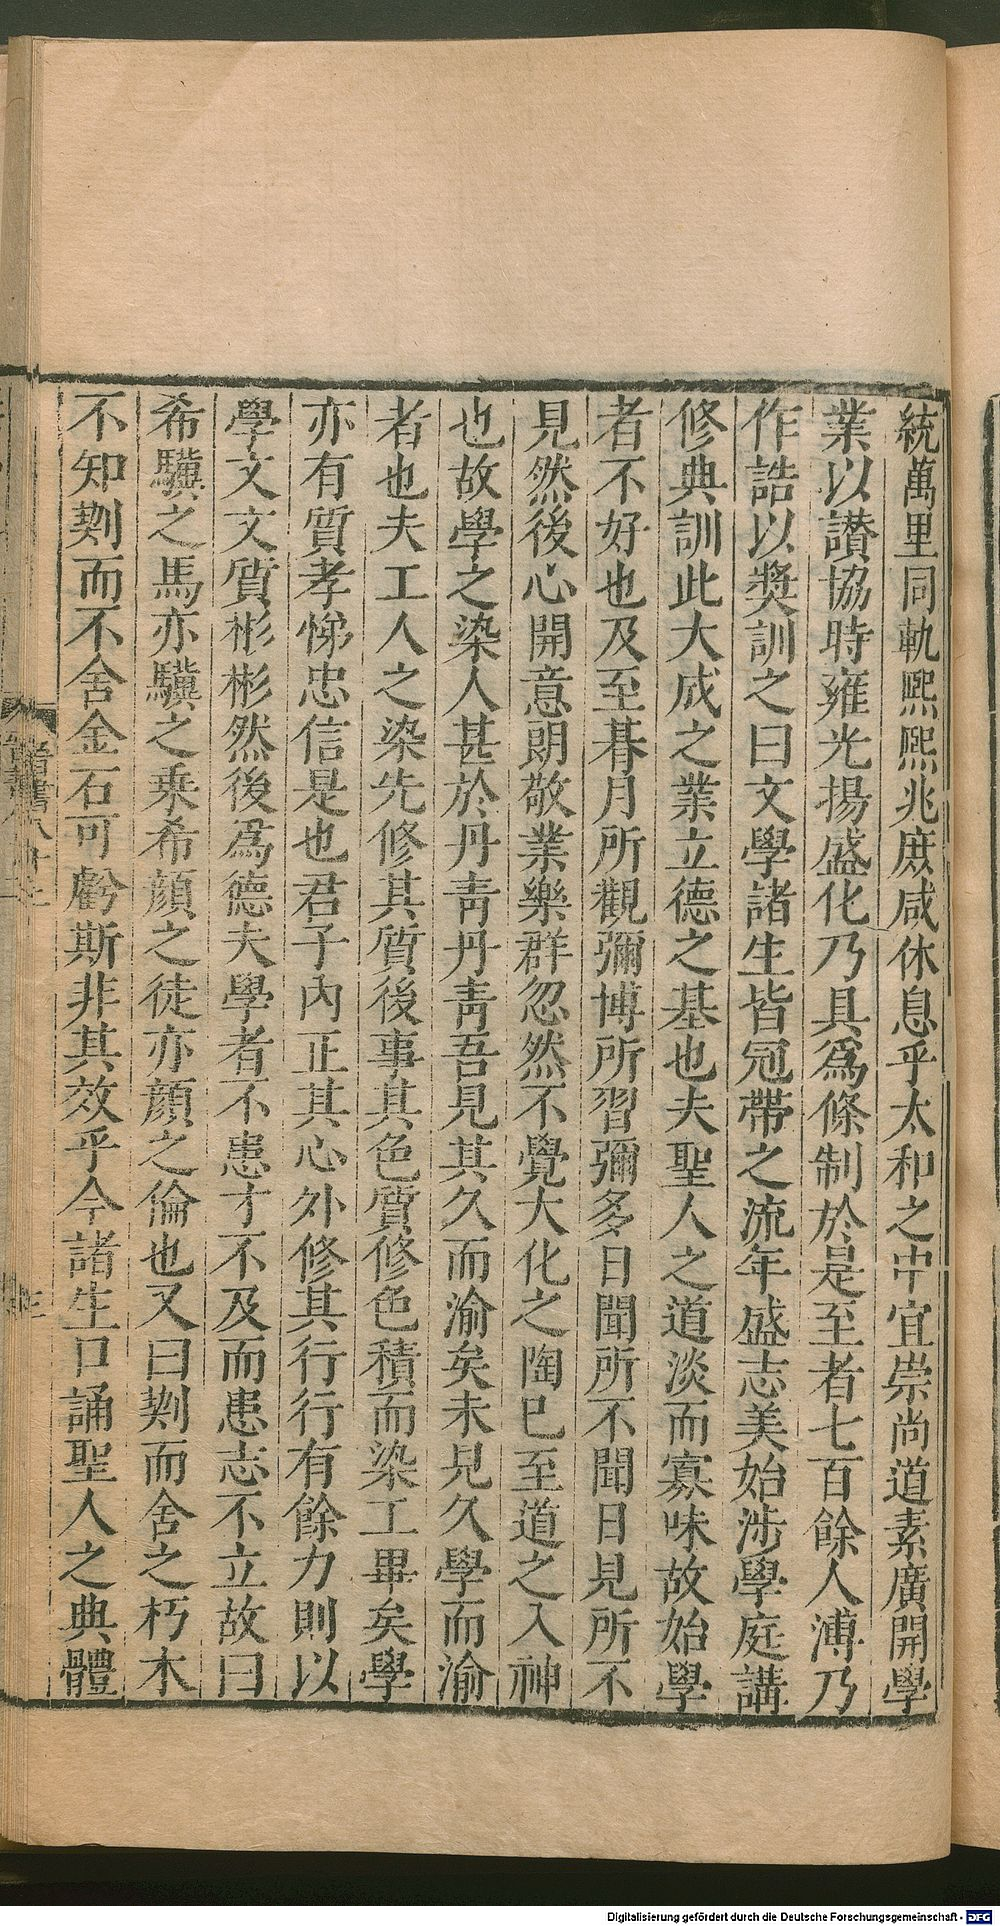 統萬里同軌熈熈兆庶咸休息乎太和之中宜崇尚道素廣開學
業以讃協時雍光揚盛化乃具爲條制於是至者七百餘人溥乃
作誥以奬訓之曰文學諸生皆冠帶之流年盛志美始涉學庭講
修典訓此大成之業立德之基也夫聖人之道淡而寡味故始學
者不好也及至朞月所觀彌博所習彌多日聞所不聞日見所不
見然後心開意朗敬業樂群忽然不覺大化之陶巳至道之入神
也故學之染人甚於丹靑丹靑吾見其久而渝矣未見久學而渝
者也夫工人之染先修其質後事其色質修色積而染工畢矣學
亦有質孝悌忠信是也君子內正其心外修其行行有餘力則以
學文文質彬彬然後爲德夫學者不患才不及而患志不立故曰
希驥之馬亦驥之乗希顔之徒亦顔之倫也又曰剘而舍之朽木
不知剘而不舍金石可虧斯非其效乎今諸生口誦聖人之典體
Digitalisierung gefördert durch die Deutsche Forschungsgemeinschaft - DFG